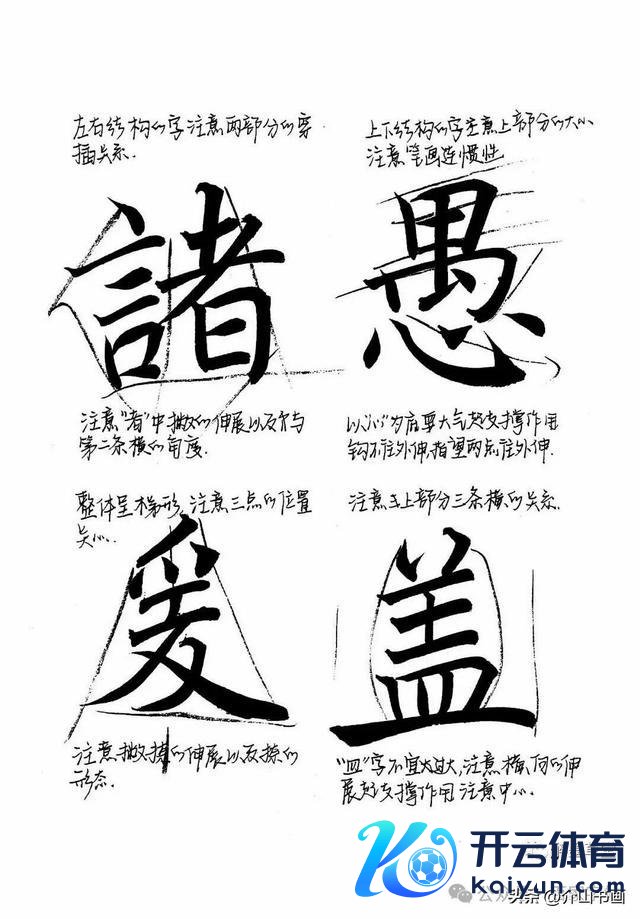 左右结构的字注意两部分的穿
插关系.
諸
注意"者"中撇的伸展以及它与
第二条横的角度.
上下结构的字注意上部分的大小
注意笔画连惯性
愚
以"心"为底要大气起支撑作用
钩不往外伸,指望两点往外伸.
整体呈梯形,注意三点的位置
关心.
爰
注意撇捺的伸展以及捺的
形态.
注意上部分三条横的关系.
盖
"皿"字不宜太大,注意横的伸
展起支撑作用注意中心.
开云体育
kaiyun.com
公众
头条@介山书画